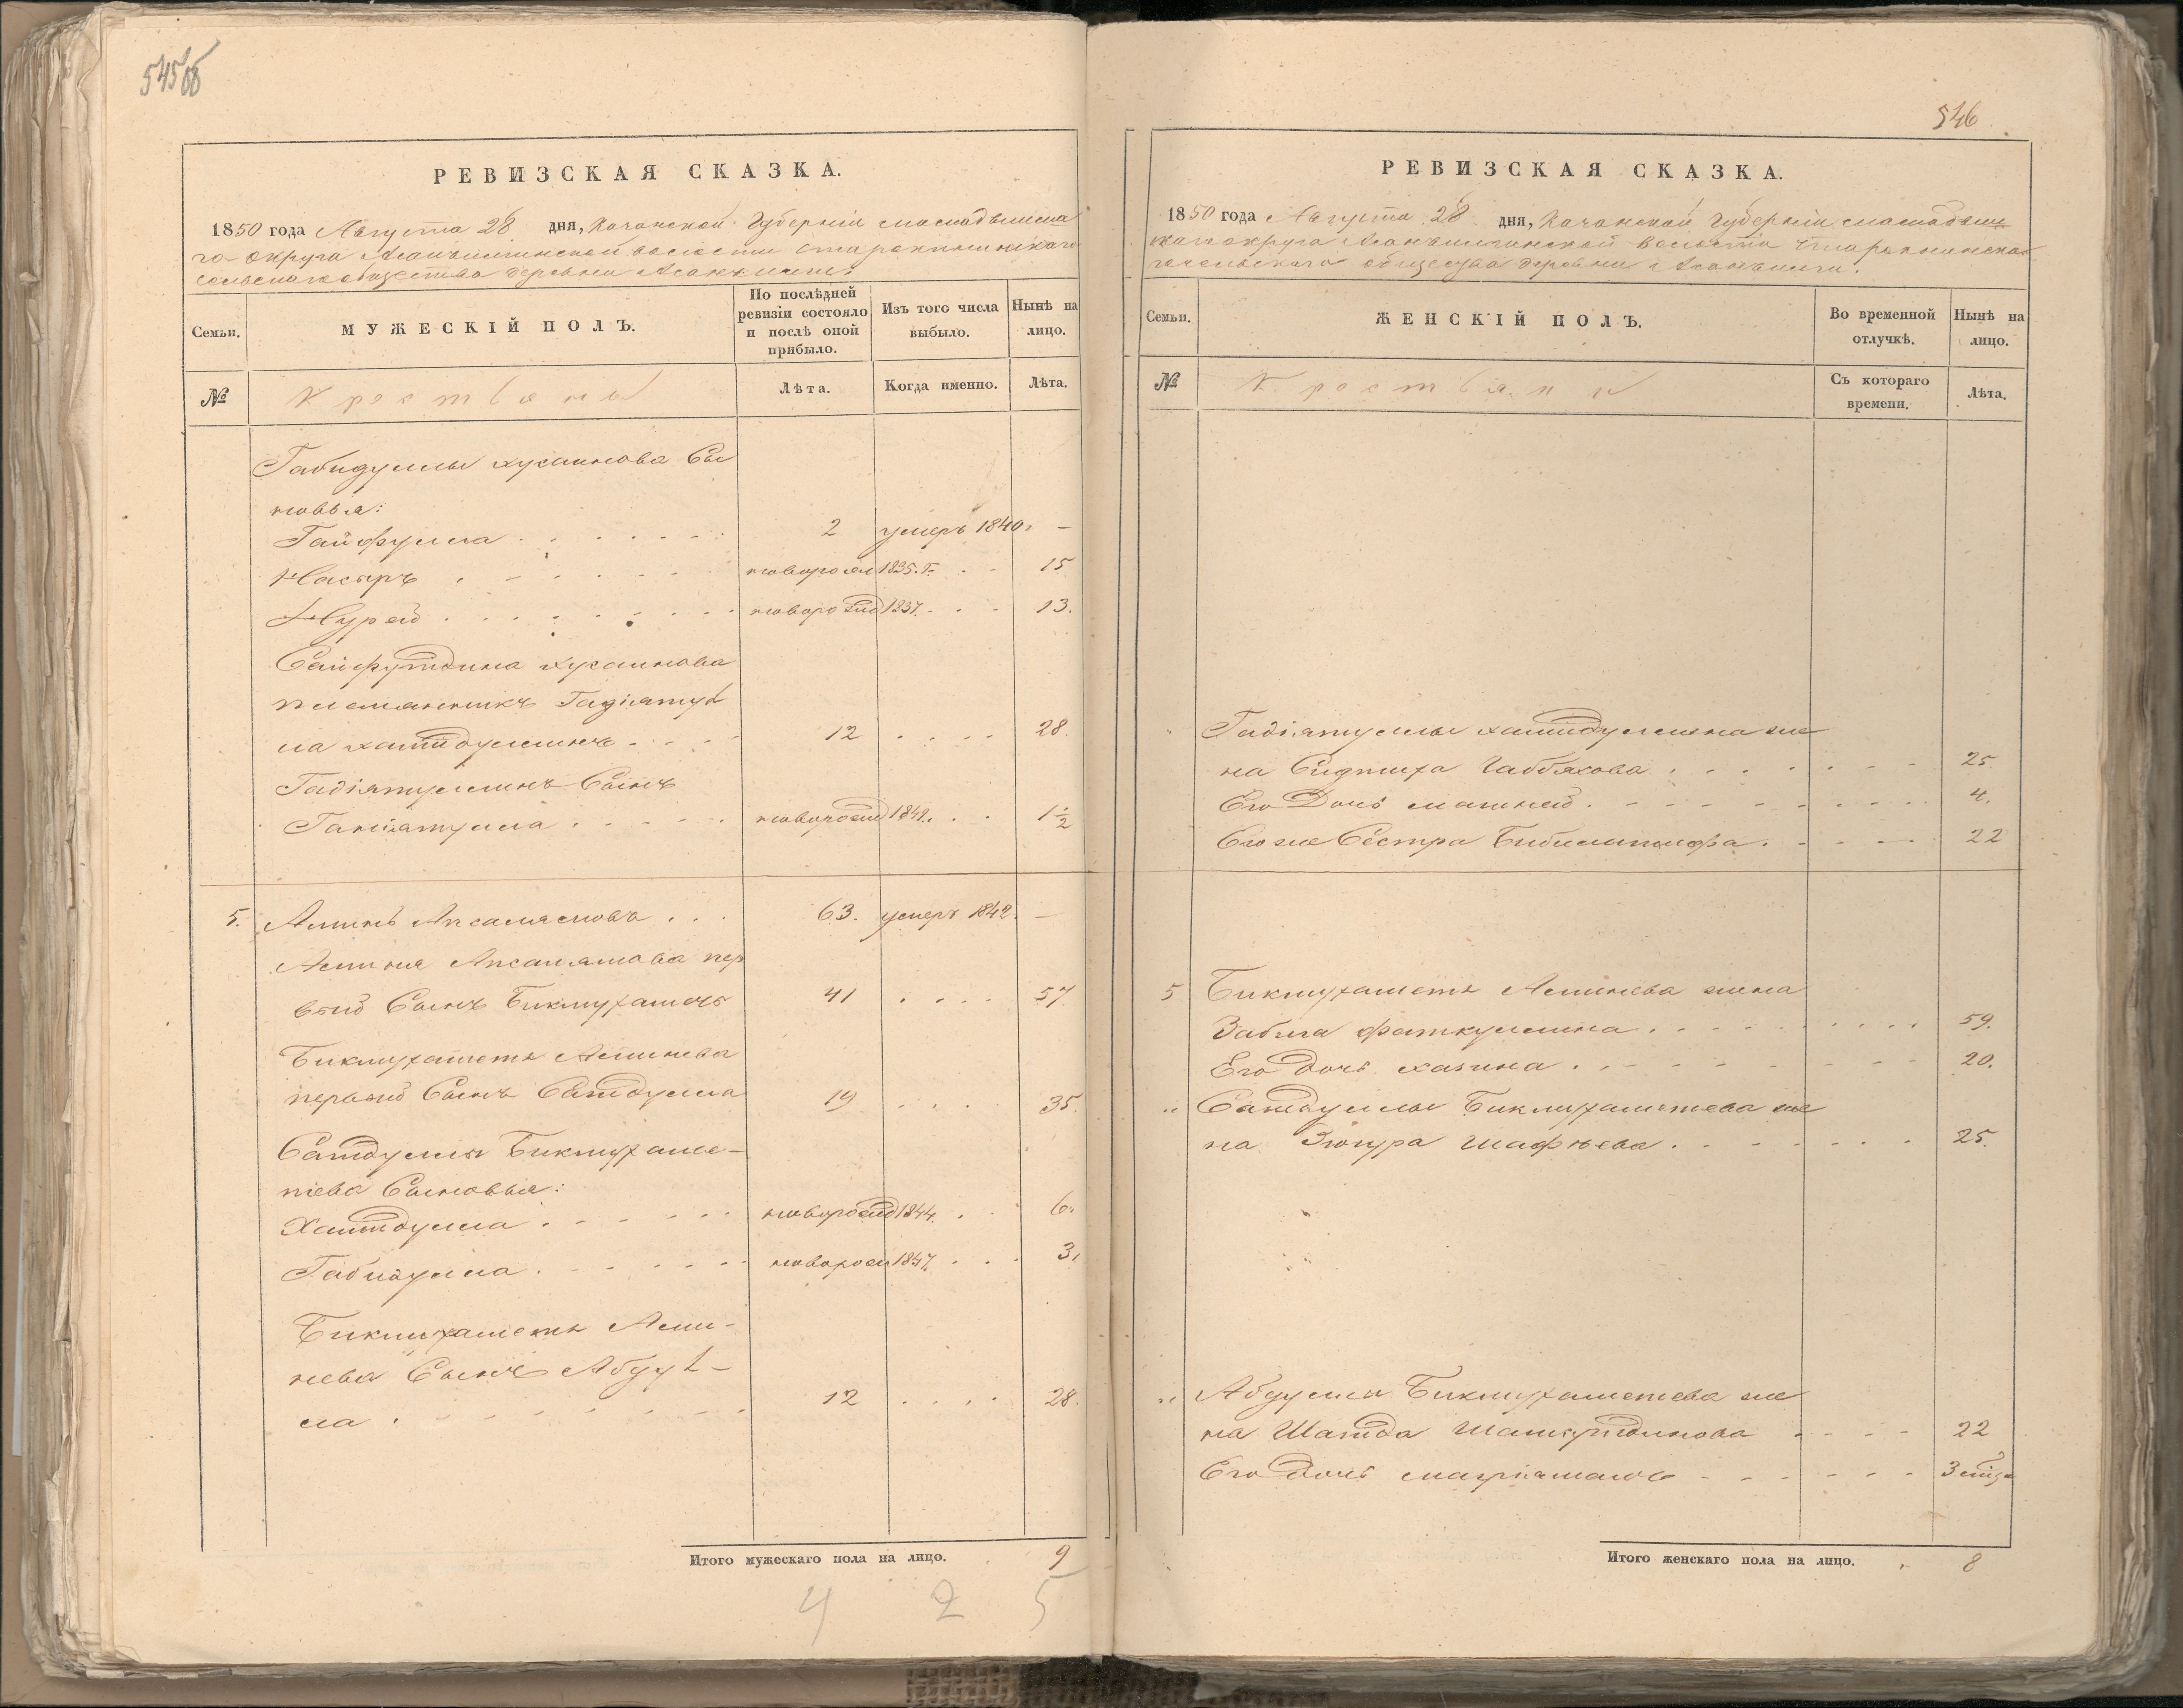 545об
РЕВИЗСКАЯ СКАЗКА.
1850 года Августа 28 дня, Казанской Губерніи Мамадышска
го округа Асанъилгинской волости
сельскаго общества деревни Асанъилги.
Семьи.
МУЖЕСКІЙ ПОЛЪ.
По послѣдней ревизіи состояло и послѣ оной прибыло.
Изъ того числа выбыло.
Нынѣ на лицо.
№
Крестьяне
Лѣта.
Когда именно.
Лѣта.
Габидуллы Хусаинова Сы
новья:
Гайфулла 2 умеръ 1840 г —
Насыръ новорож 1835. г. 15
Нурей новорожд 1837 13.
Сайфутдина Хусаинова
племянникъ Гадіятул
ла Хамидуллинъ 12 28.
Гадіятуллинъ Сынъ
Ганіятулла новорожд 1849. 1½
5. Аминь Апсалямовъ 63. умеръ 1842. —
Аминя Апсалямова пер
вый Сынъ Бикмухаметъ 41 57
Бикмухаметя Аминева
первый Сынъ Сагидулла 19 35.
Сагидуллы Бикмухаме-
тева Сыновья:
Хамидулла новорожд 1844. 6.
Габидулла новорож 1847. 3.
Бикмухаметя Ами-
нева Сынъ Абдул-
ла 12 28.
Итого мужескаго пола на лицо. 9
4 2 5
546
РЕВИЗСКАЯ СКАЗКА.
1850 года Августа 28 дня, Казанской Губерніи Мамадыш
скаго округа Асанъилгинской волости
го сельскаго общества деревни Асанъилги.
Семьи.
ЖЕНСКІЙ ПОЛЪ.
Во временной отлучкѣ.
Нынѣ на лицо.
№
Крестьяне
Съ котораго времени.
Лѣта.
Гадіятуллы Хамидуллина же
на Габбясова 25.
Его Дочь 4.
Его же Сестра Бибилатифа 22
5 Бикмухаметя Аминева жена
Забида Фаткуллина 59.
Его дочь Хазина 20.
" Сагидуллы Бикмухаметева же
на Зюгура Шафѣева 25.
" Абдуллы Бикмухаметева же
на Шагида 22
Его Дочь 3
Итого женскаго пола на лицо. 8